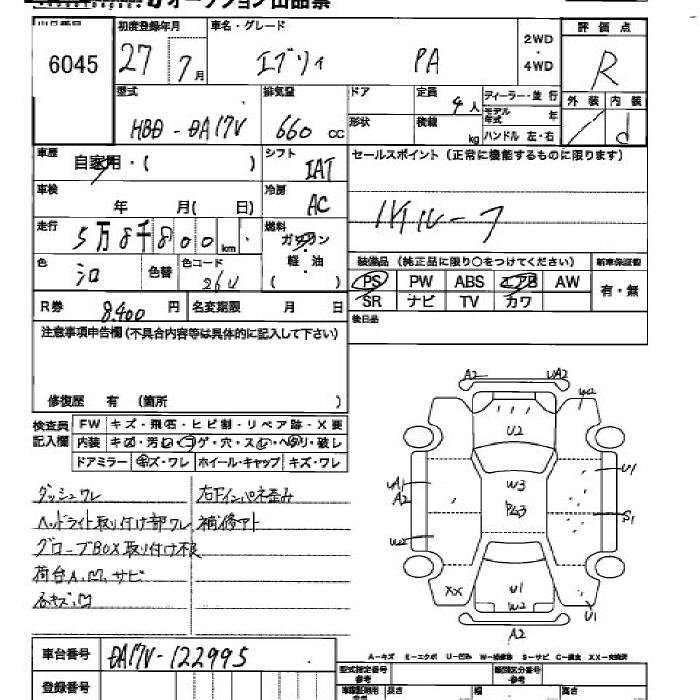 オークション出品票
出品番号 初度登録年月 車名・グレード 2WD・4WD 評価点
6045 27 7月 エブリィ PA R
型式 排気量 ドア 定員 4人 ディーラー・並行 外装 内装
モデル年式 年
HBD-DA17V 660 cc 形状 積載 kg ハンドル 左・右 d
車歴 自家用・( ) シフト IAT セールスポイント(正常に機能するものに限ります)
車検 年 月( 日) 冷房 AC
ハイルーフ
走行 5万8千800km 燃料 ガソリン・軽・油 ( )
装備品(純正品に限り○をつけてください) 新車保証書
色 シロ 色替 色コード 26U
PS PW ABS エアB AW 有・無
SR ナビ TV カワ
R券 8,400円 名変期限 月 日
後日品
注意事項申告欄(不具合内容等は具体的に記入して下さい)
修復歴 有 (箇所 )
検査員記入欄 FW キズ・飛石・ヒビ割・リペア跡・X要
内装 キズ・汚レ・コゲ・穴・スレ・ヘタリ・破レ
ドアミラー キズ・ワレ ホイール・キャップ キズ・ワレ
ダッシュワレ 右下インパネ歪み
ヘッドライト取り付け部ワレ 補修アト
グローブBOX取り付け不良
荷台A,凹,サビ
A2 UA2
W2
U2
UA1 W3 U1
A2
P63 S1
W2
XX U1 U1
W2
A2
A-キズ E-エクボ U-凹み W-補修跡 S-サビ C-腐食 XX-交換済
車台番号 DA17V-122995
型式指定番号 参考 類別区分番号 参考
登録番号 長さ 幅 高さ